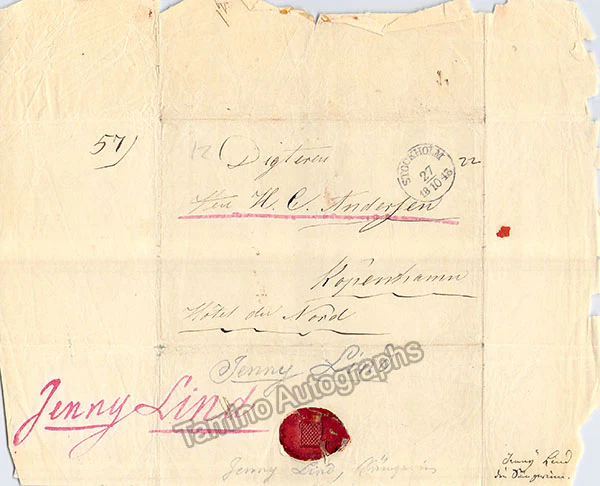 57)
12 Digteren
Herr H. C. Andersen
Kopenhamn
Hôtel du Nord
STOCKHOLM
27
18 10 43
22
Jenny Lind
Jenny Lind
Tamino Autographs
Jenny Lind, Sängerin
Jenny Lind
die Sängerinn.